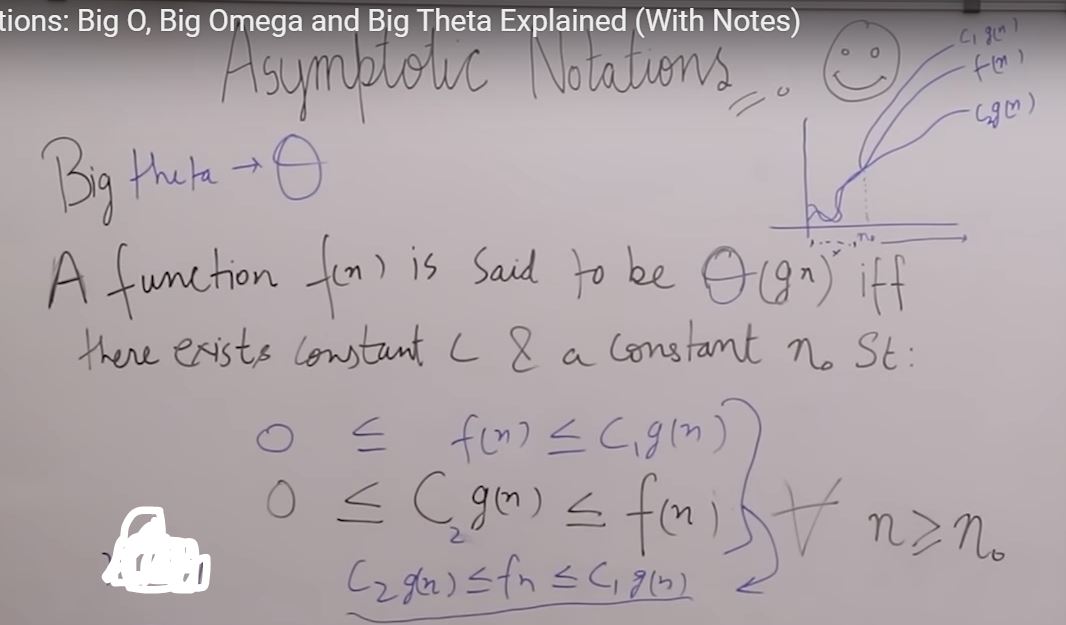 tions: Big O, Big Omega and Big Theta Explained (With Notes)
Asymptotic Notations
C₁ g(n)
f(n)
C₂g(n)
Big theta → Θ
n₀
A function f(n) is Said to be Θ(gn) iff
there exists Constant C & a Constant n₀ St:
0 ≤ f(n) ≤ C₁g(n)
0 ≤ C₂g(n) ≤ f(n) ∀ n ≥ n₀
C₂g(n) ≤ fn ≤ C₁g(n)